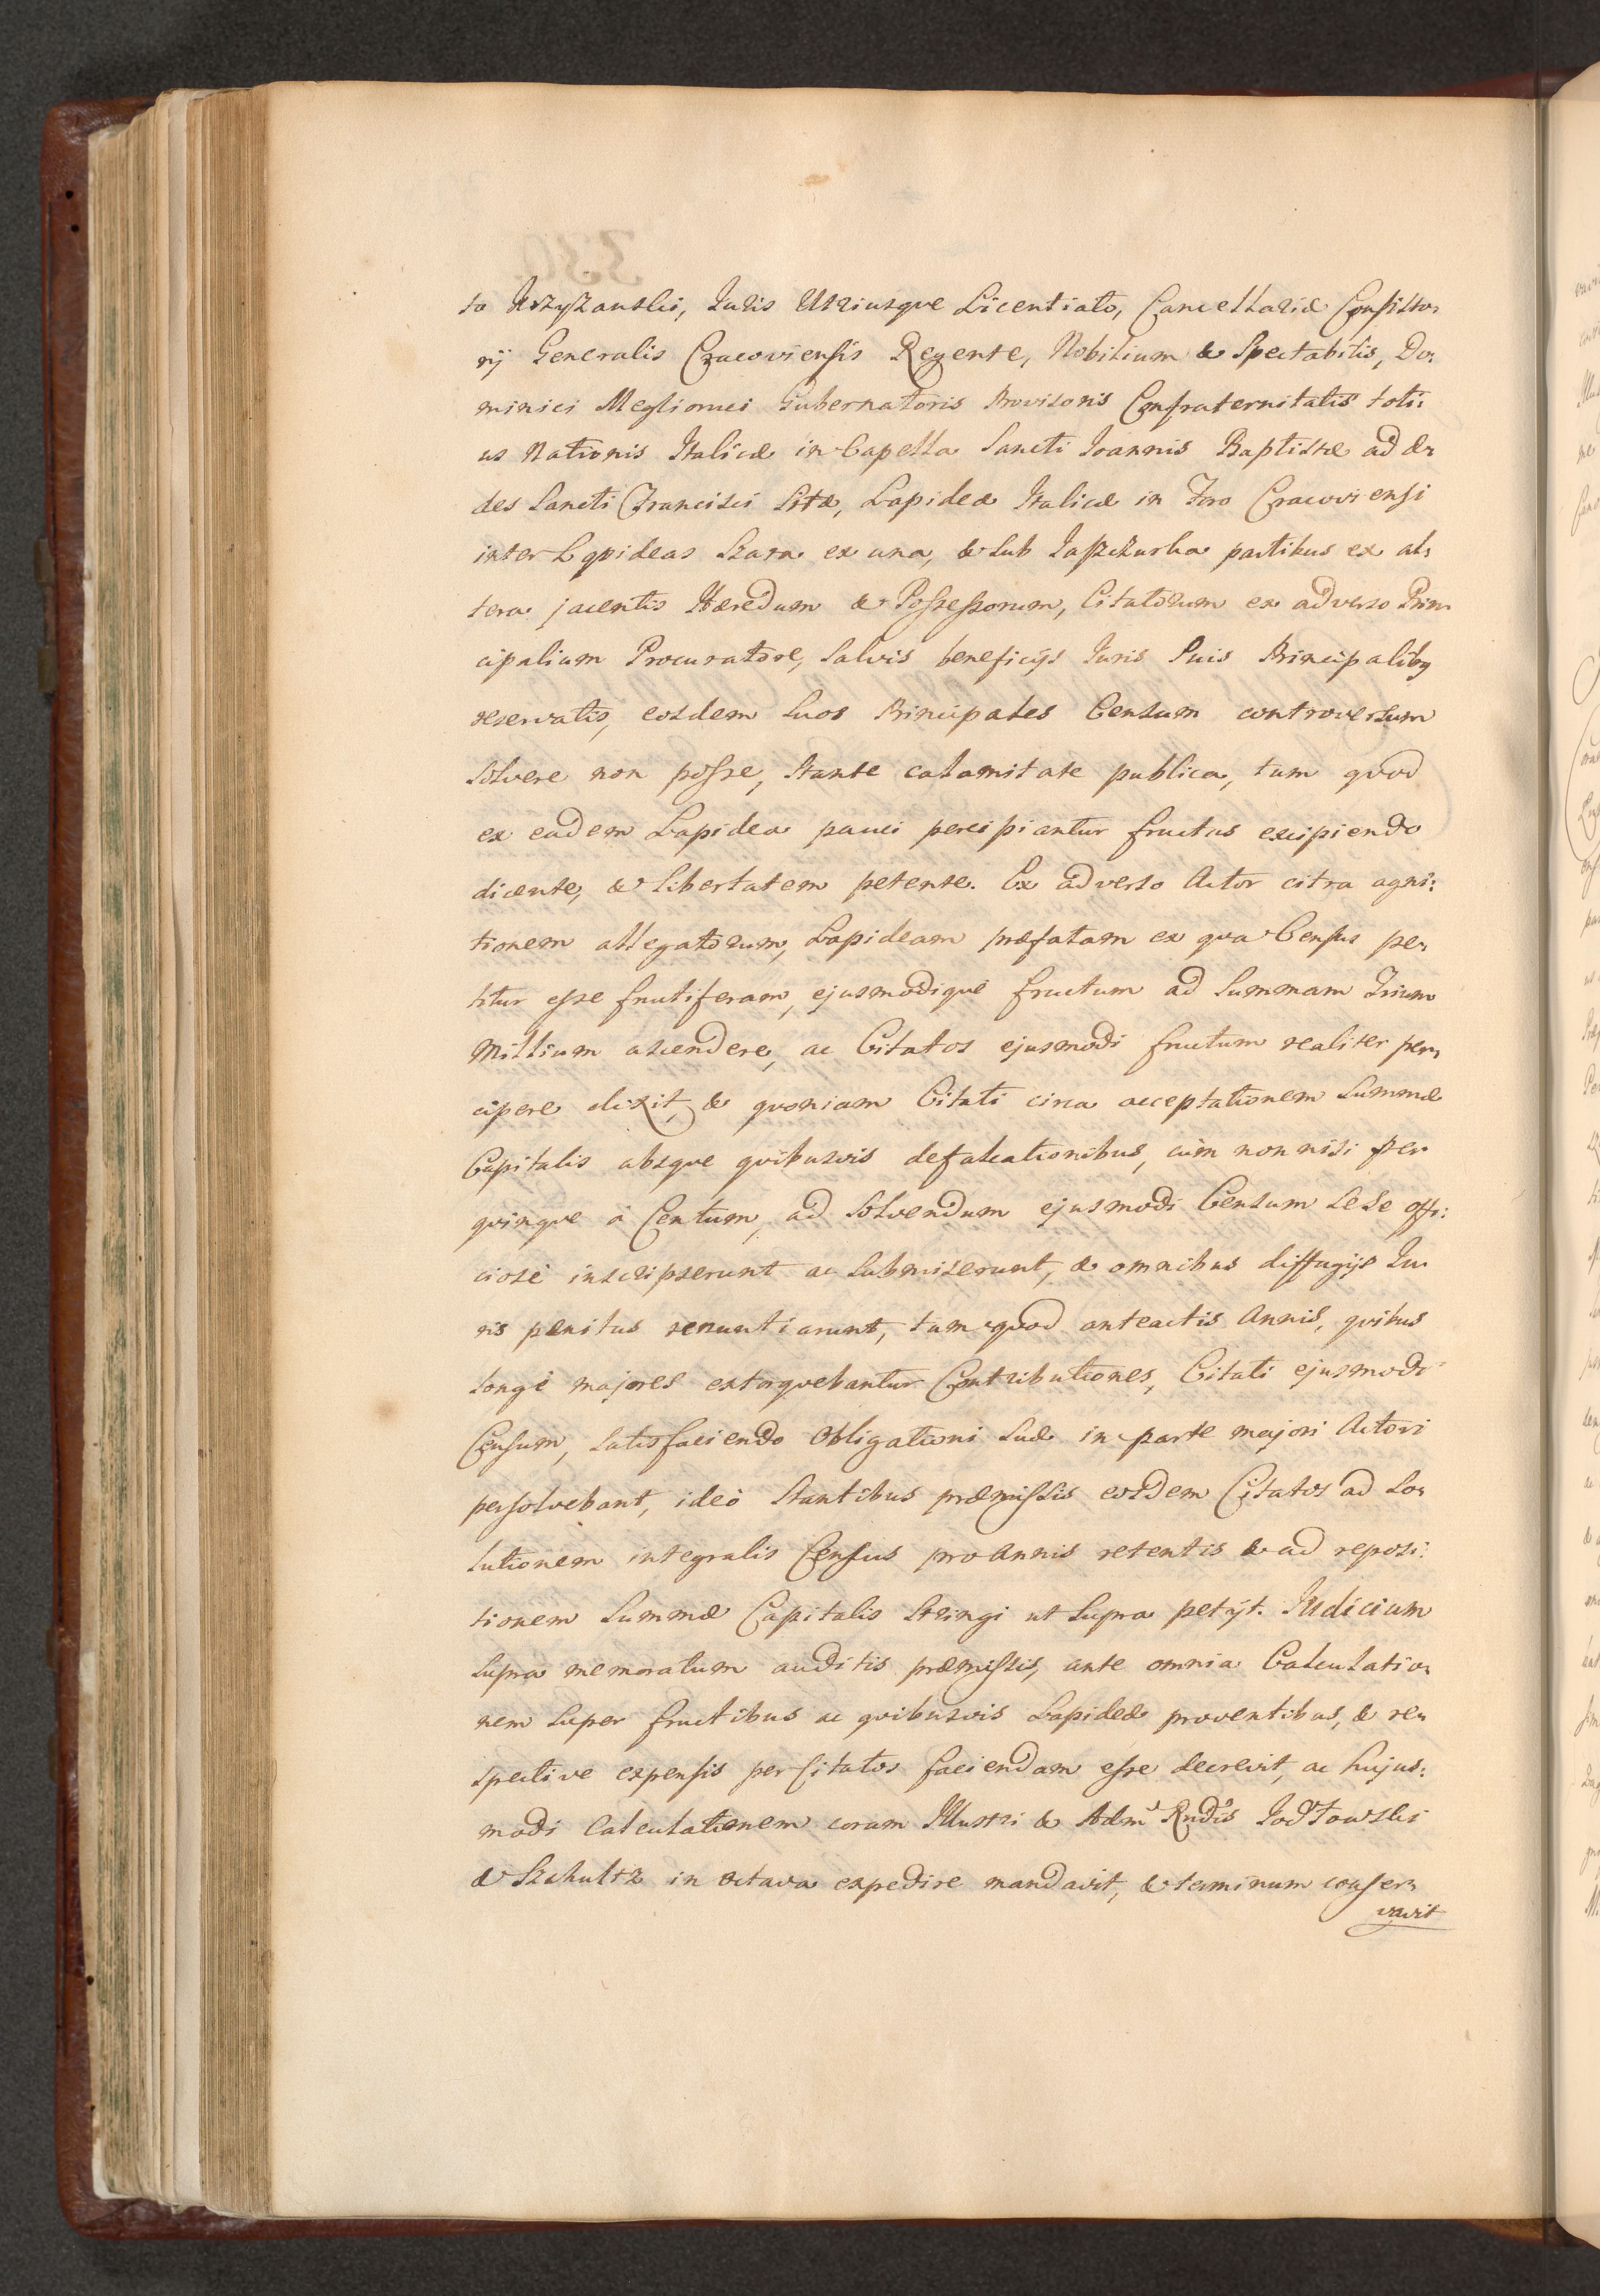 to Krzyżanski, Juris Utriusque Licentiato, Cancellariæ Consisto-
rij Generalis Cracoviensis Regente, Nobilium & Spectabilis, Do-
minici Meglioruci Gubernatoris Provisoris Confraternitatis toti:
us Nationis Italicæ in Capella Sancti Joannis Baptistæ ad æ-
des Sancti Francisci Sitæ, Lapideæ Italicæ in Foro Cracoviensi
inter Lapideas Szara ex una, & sub Jaszczurka partibus ex al-
tera jacentis Hæredum & Possessorum, Citatorum ex adverso Prin-
cipalium Procuratore, Salvis beneficijs Juris Suis Principalibq
reservatis, eosdem Suos Principales Censum controversum
Solvere non posse, Stante calamitate publica, tum quod
ex eadem Lapidea pauci percipiantur fructus excipiendo
dicente, & libertatem petente. Ex adverso Actor citra agni:
tionem allegatorum, Lapideam præfatam ex qua Census pe-
titur esse fructiferam, ejusmodique fructum ad Summam Trium
Millium ascendere, ac Citatos ejusmodi fructum realiter per-
cipere dixit, & quoniam Citati circa acceptationem Summæ
Capitalis absque quibusvis defalcationibus, cùm non nisi per
quinque à Centum, ad Solvendum ejusmodi Censum Sese offi:
ciosè inscripserunt ac Submiserunt, & omnibus diffugijs Ju-
ris pænitus renuntiarunt, tum quod anteactis Annis, quibus
longè majores extorquebantur Contributiones, Citati ejusmodi
Censum, Satisfaciendo Obligationi Suæ in parte majori Actori
persolvebant, ideò Stantibus præmissis eosdem Citatos ad So-
lutionem integralis Census pro Annis retentis & ad reposi:
tionem Summæ Capitalis Stringi ut Supra petijt. Judicium
Supra memoratum auditis præmissis, ante omnia Calculatio-
nem Super fructibus ac quibusvis Lapideæ proventibus, & re-
spective expensis per Citatos faciendam esse decrevit, ac hujus:
modi Calculationem coram Illustri & Adm Rndis Jodłowski
& Szchultz in octava expedire mandavit, & terminum conser-
vavit